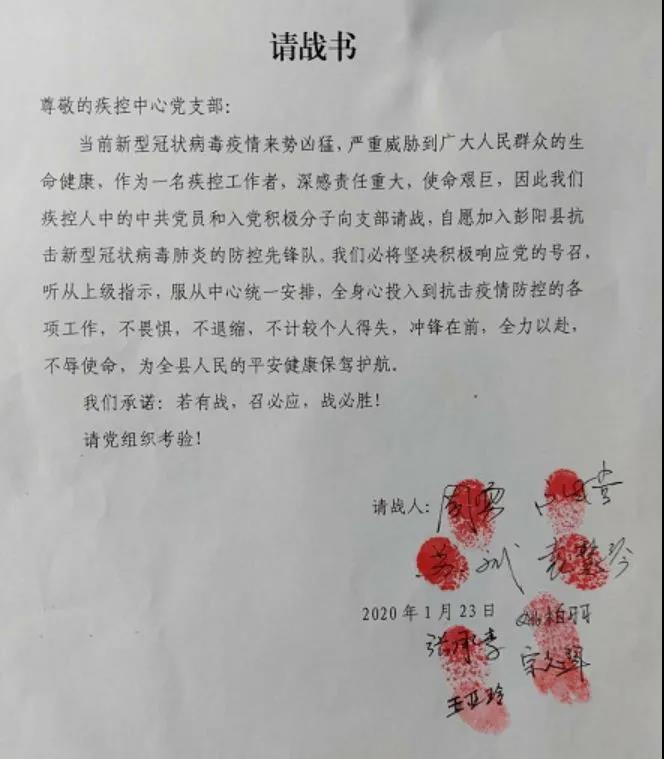 请战书
尊敬的疾控中心党支部：
当前新型冠状病毒疫情来势凶猛，严重威胁到广大人民群众的生
命健康，作为一名疾控工作者，深感责任重大，使命艰巨，因此我们
疾控人中的中共党员和入党积极分子向支部请战，自愿加入彭阳县抗
击新型冠状病毒肺炎的防控先锋队。我们必将坚决积极响应党的号召，
听从上级指示，服从中心统一安排，全身心投入到抗击疫情防控的各
项工作，不畏惧，不退缩，不计较个人得失，冲锋在前，全力以赴，
不辱使命，为全县人民的平安健康保驾护航。
我们承诺：若有战，召必应，战必胜！
请党组织考验！
请战人：
袁慧玲
2020年1月23日 姚柏羽
王亚玲